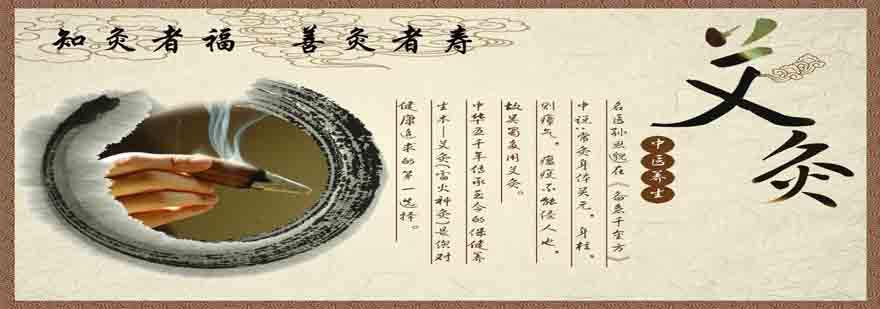 知灸者福 善灸者寿
艾灸
中医养生
名医孙思邈在《备急千金方》
中说:常灸身体关元,身柱。
则瘴气,瘟疫不能侵人也,
故吴蜀多用艾灸。
中华五千年传承至今的保健养
生术—艾灸(雷火神灸)是你对
健康追求的第一选择。